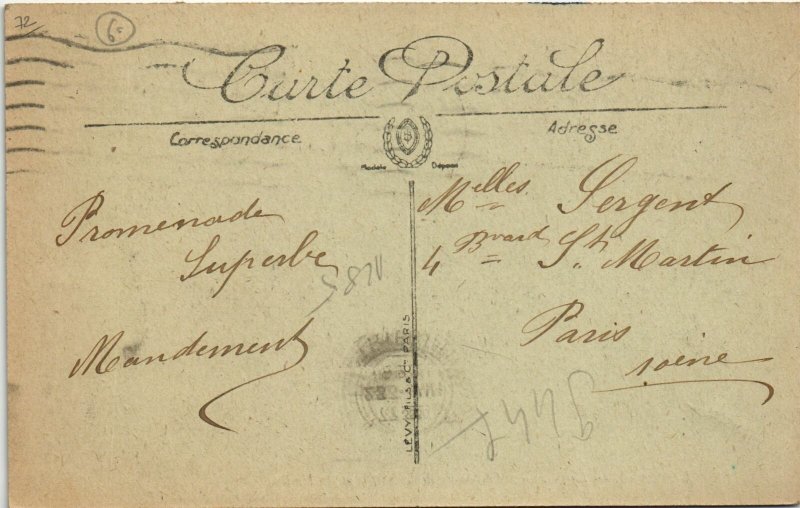 72
6-
Carte Postale
Correspondance
Adresse
Modèle Déposé
Promenade
Superbe
Mandement
Melles Sergent
4 Bvard St. Martin
Paris
Seine
LEVY FILS & Cie PARIS